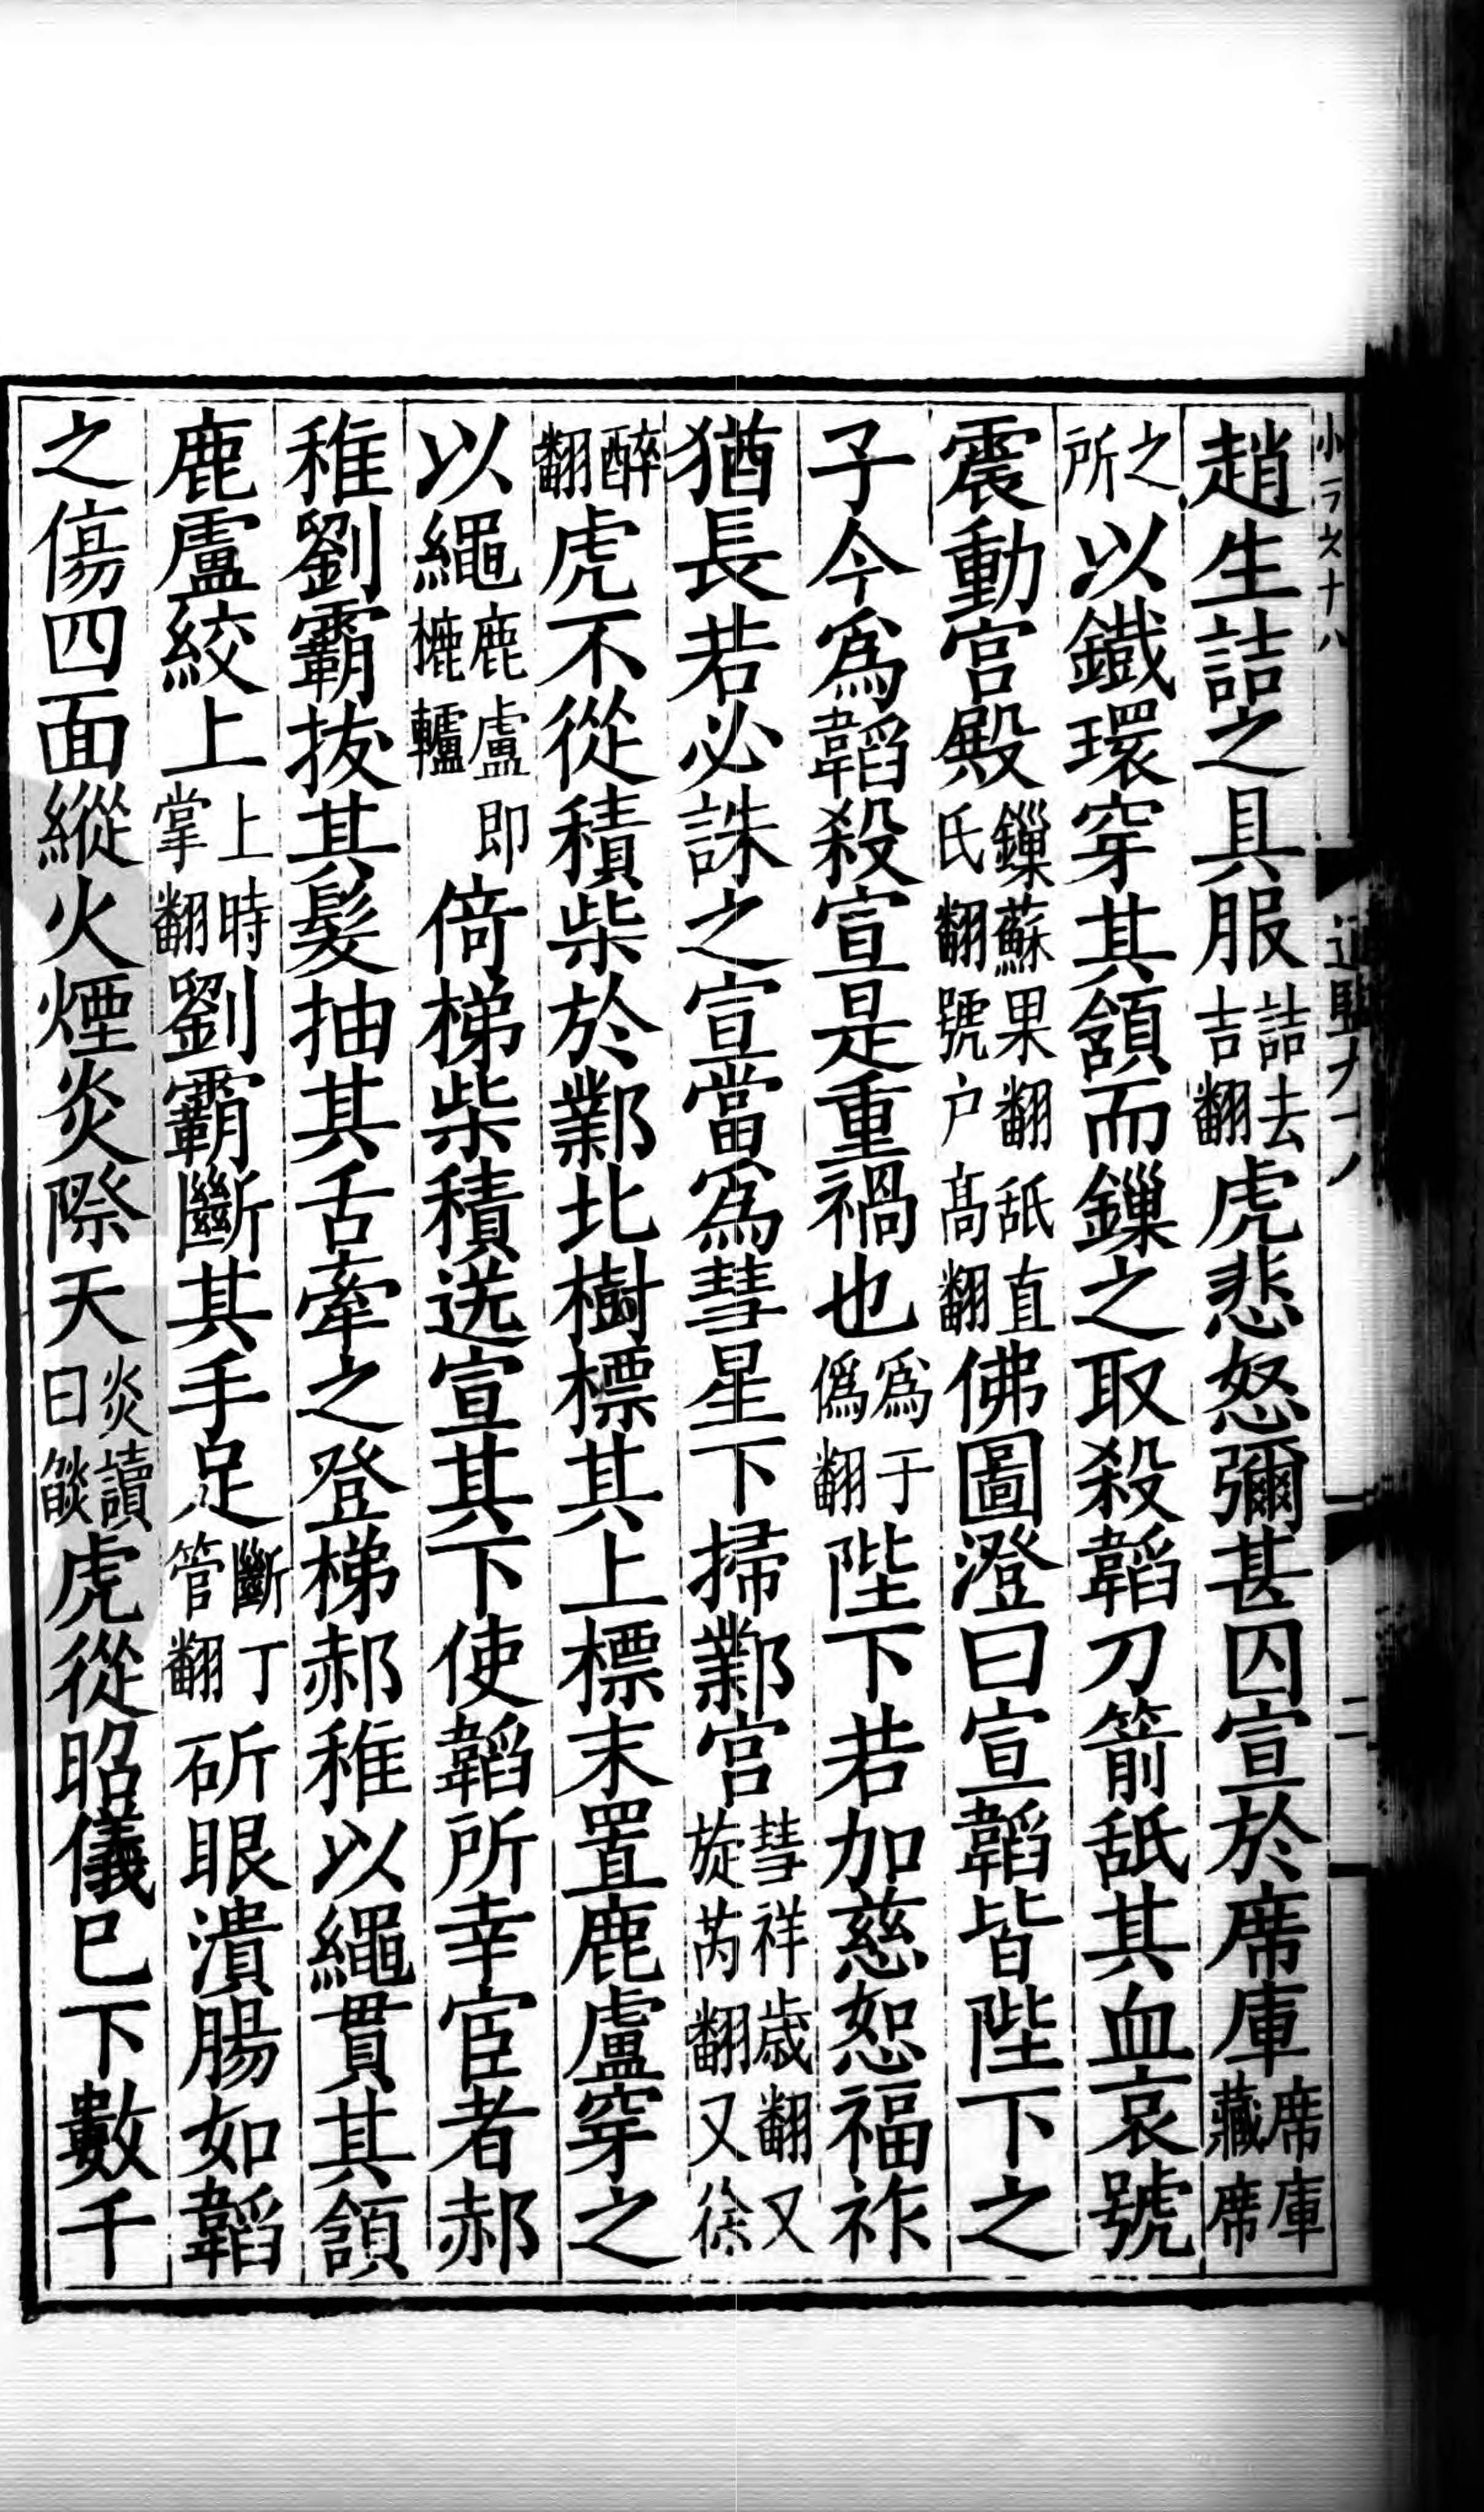 趙生詰之具服詰去吉翻虎悲怒彌甚囚宣於席庫席庫藏席
之所以鐵環穿其頷而鏁之取殺韜刀箭舐其血哀號
震動宫殿鏁蘇果翻舐直氏翻號户髙翻佛圖澄曰宣韜皆陛下之
子今爲韜殺宣是重禍也爲于僞翻陛下若加慈恕福祚
猶長若必誅之宣當爲彗星下掃鄴宫彗祥歳翻又旋芮翻又徐
醉翻虎不從積柴於鄴北樹標其上標末置鹿盧穿之
以繩鹿盧即樚轤倚梯柴積送宣其下使韜所幸宦者郝
稚劉霸拔其髮抽其舌牽之登梯郝稚以繩貫其頷
鹿盧絞上上時掌翻劉霸斷其手足斷丁管翻斫眼潰腸如韜
之傷四面縱火煙炎際天炎讀曰燄虎從昭儀已下數千